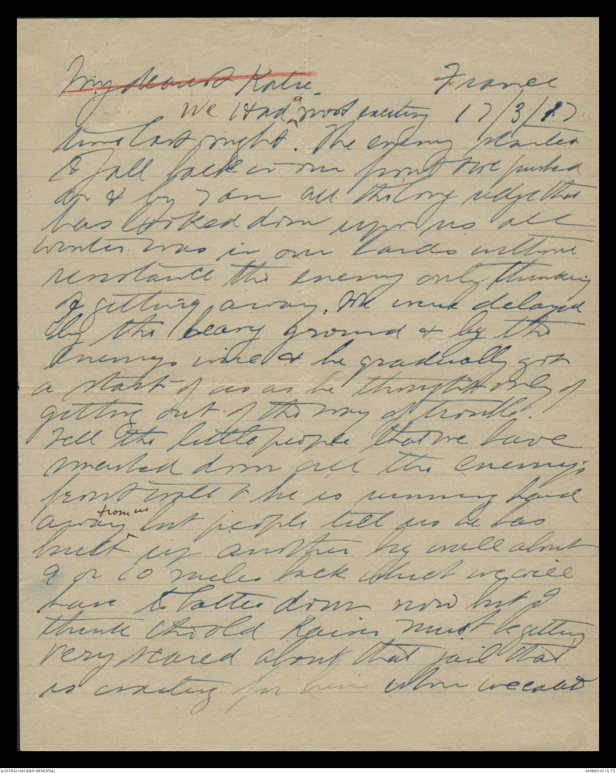 My dearest Katie. France
We had a most exciting 17/3/17
time last night. The enemy started
to fall back in our front & we pushed
on & by 7 am all the long ridge that
has looked down upon us all
winter was in our hands without
resistance the enemy only thinking
of getting away. We were delayed
by the heavy ground & by the
enemys wire & he gradually got
a start of us as he thought only of
getting out of the way of trouble.
Tell the little people that we have
smashed down all the enemy's
front wall & he is running hard
away from us but people tell us he has
built up another big wall about
9 or 10 miles back which we will
have to batter down now but I
think the old Kaiser must be getting
very scared about that jail that
is waiting for him when we catch
AUSTRALIAN WAR MEMORIAL